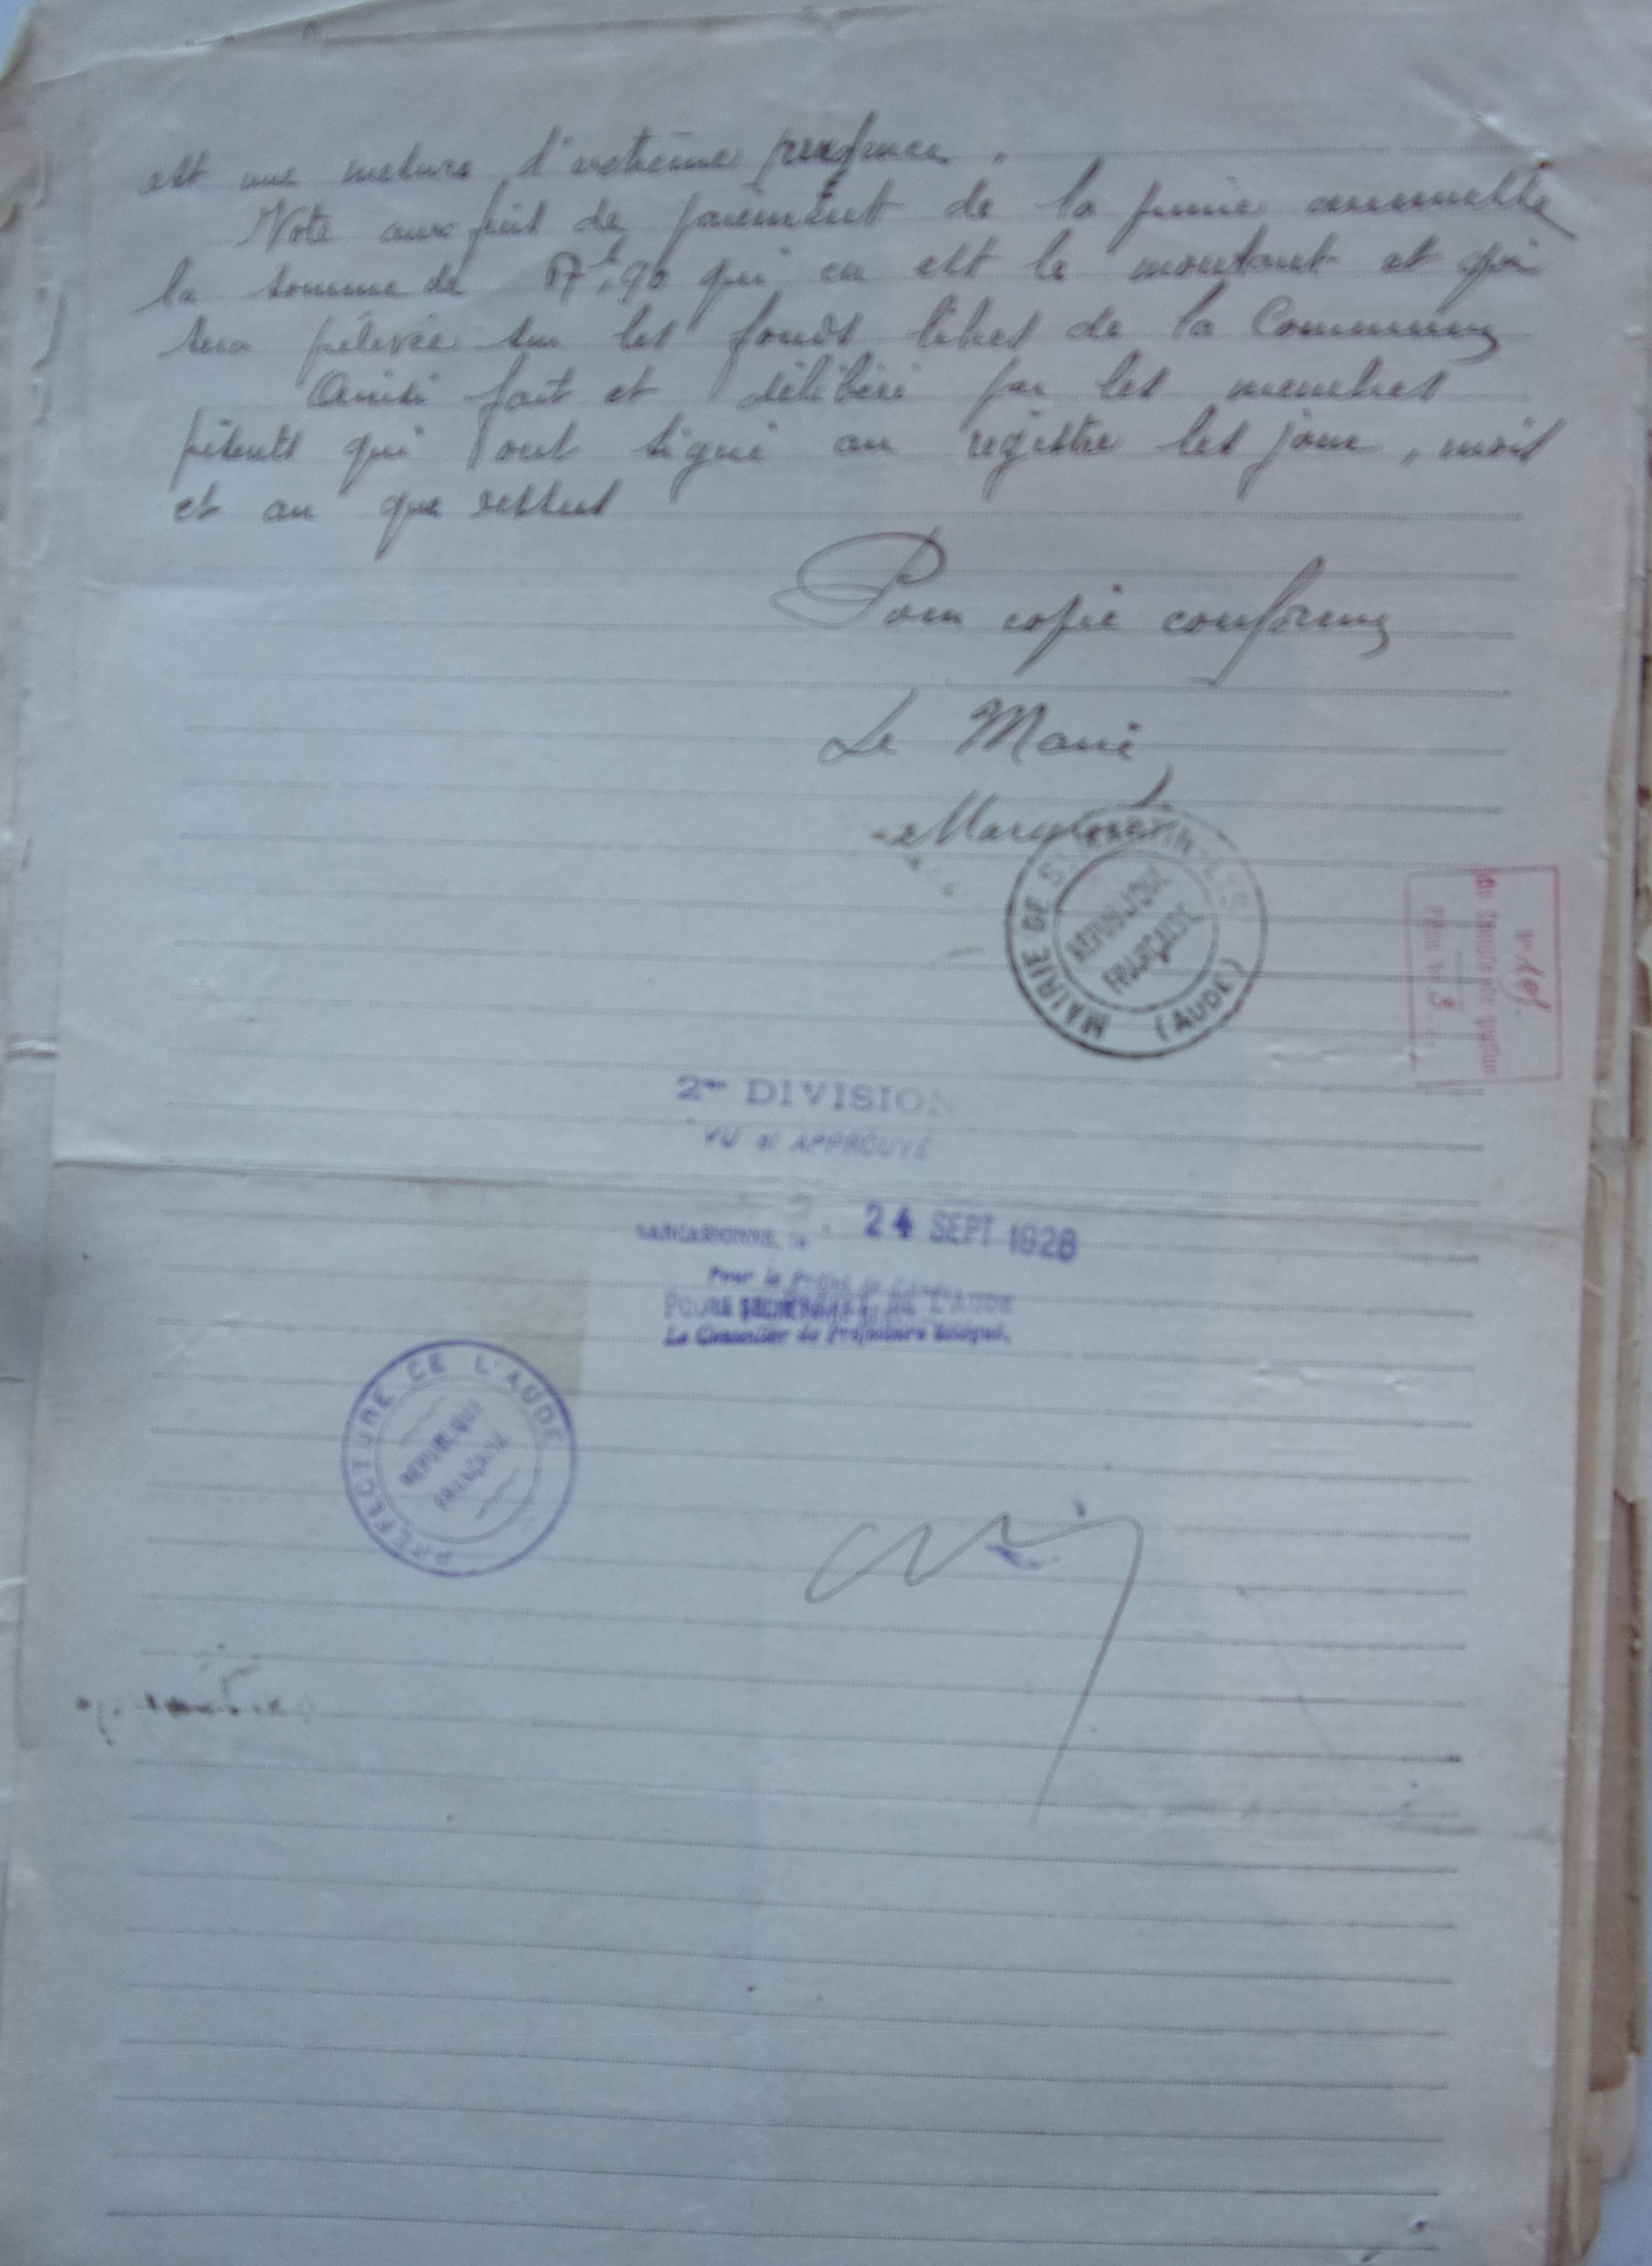 est une mesure d'extrême prudence.
Vote aux fins de paiement de la prime annuelle
la somme de 17f,90 qui en est le montant et qui
sera prélevée sur les fonds libres de la Commune
Ainsi fait et délibéré par les membres
présents qui ont signé au registre les jour, mois
et an que dessus
Pour copie conforme
Le Maire
MAIRIE DE ST MARTIN-LYS
(AUDE)
RÉPUBLIQUE
FRANÇAISE
2me DIVISION
VU et APPROUVÉ
CARCASSONNE, le 24 SEPT 1928
Pour le Préfet de l'Aude
DE L'AUDE
Le Conseiller de Préfecture délégué,
PRÉFECTURE DE L'AUDE
RÉPUBLIQUE
FRANÇAISE